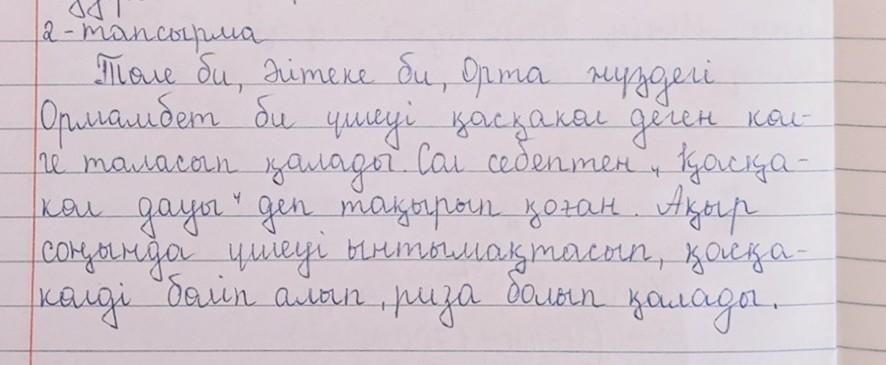 2-тапсырма
Төле би, Әйтеке би, Орта жүздегі
Ормамбет би үшеуі қасқакөл деген көл-
ге таласып қалады. Сол себептен „ Қасқа-
көл дауы" деп тақырып қойған. Ақыр
соңында үшеуі ынтымақтасып, қасқа-
көлді бөліп алып, риза болып қалады.